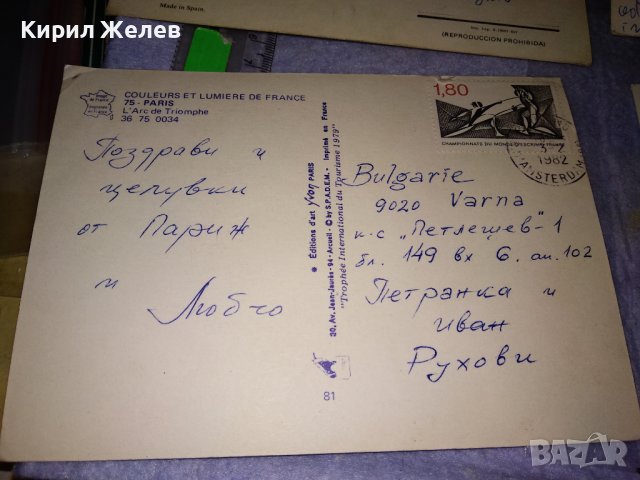 Кирил Желев
Made in Spain.
(REPRODUCCION PROHIBIDA)
COULEURS ET LUMIERE DE FRANCE
75 - PARIS
L'Arc de Triomphe
36 75 0034
Поздрави и
целувки
от Париж
и
Любчо
Editions d'art yvon PARIS
30, Av. Jean-Jaurès - 94 - Arcueil - © by S.P.A.D.E.M. - Imprimé en France
"Trophée International du Tourisme 1979"
81
1,80
CHAMPIONNATS DU MONDE D'ESCRIME
1982
Bulgarie
9020 Varna
к-с "Петлешев" - 1
бл. 149 вх 6. ап. 102
Петранка и
Иван
Рухови
BAZAR